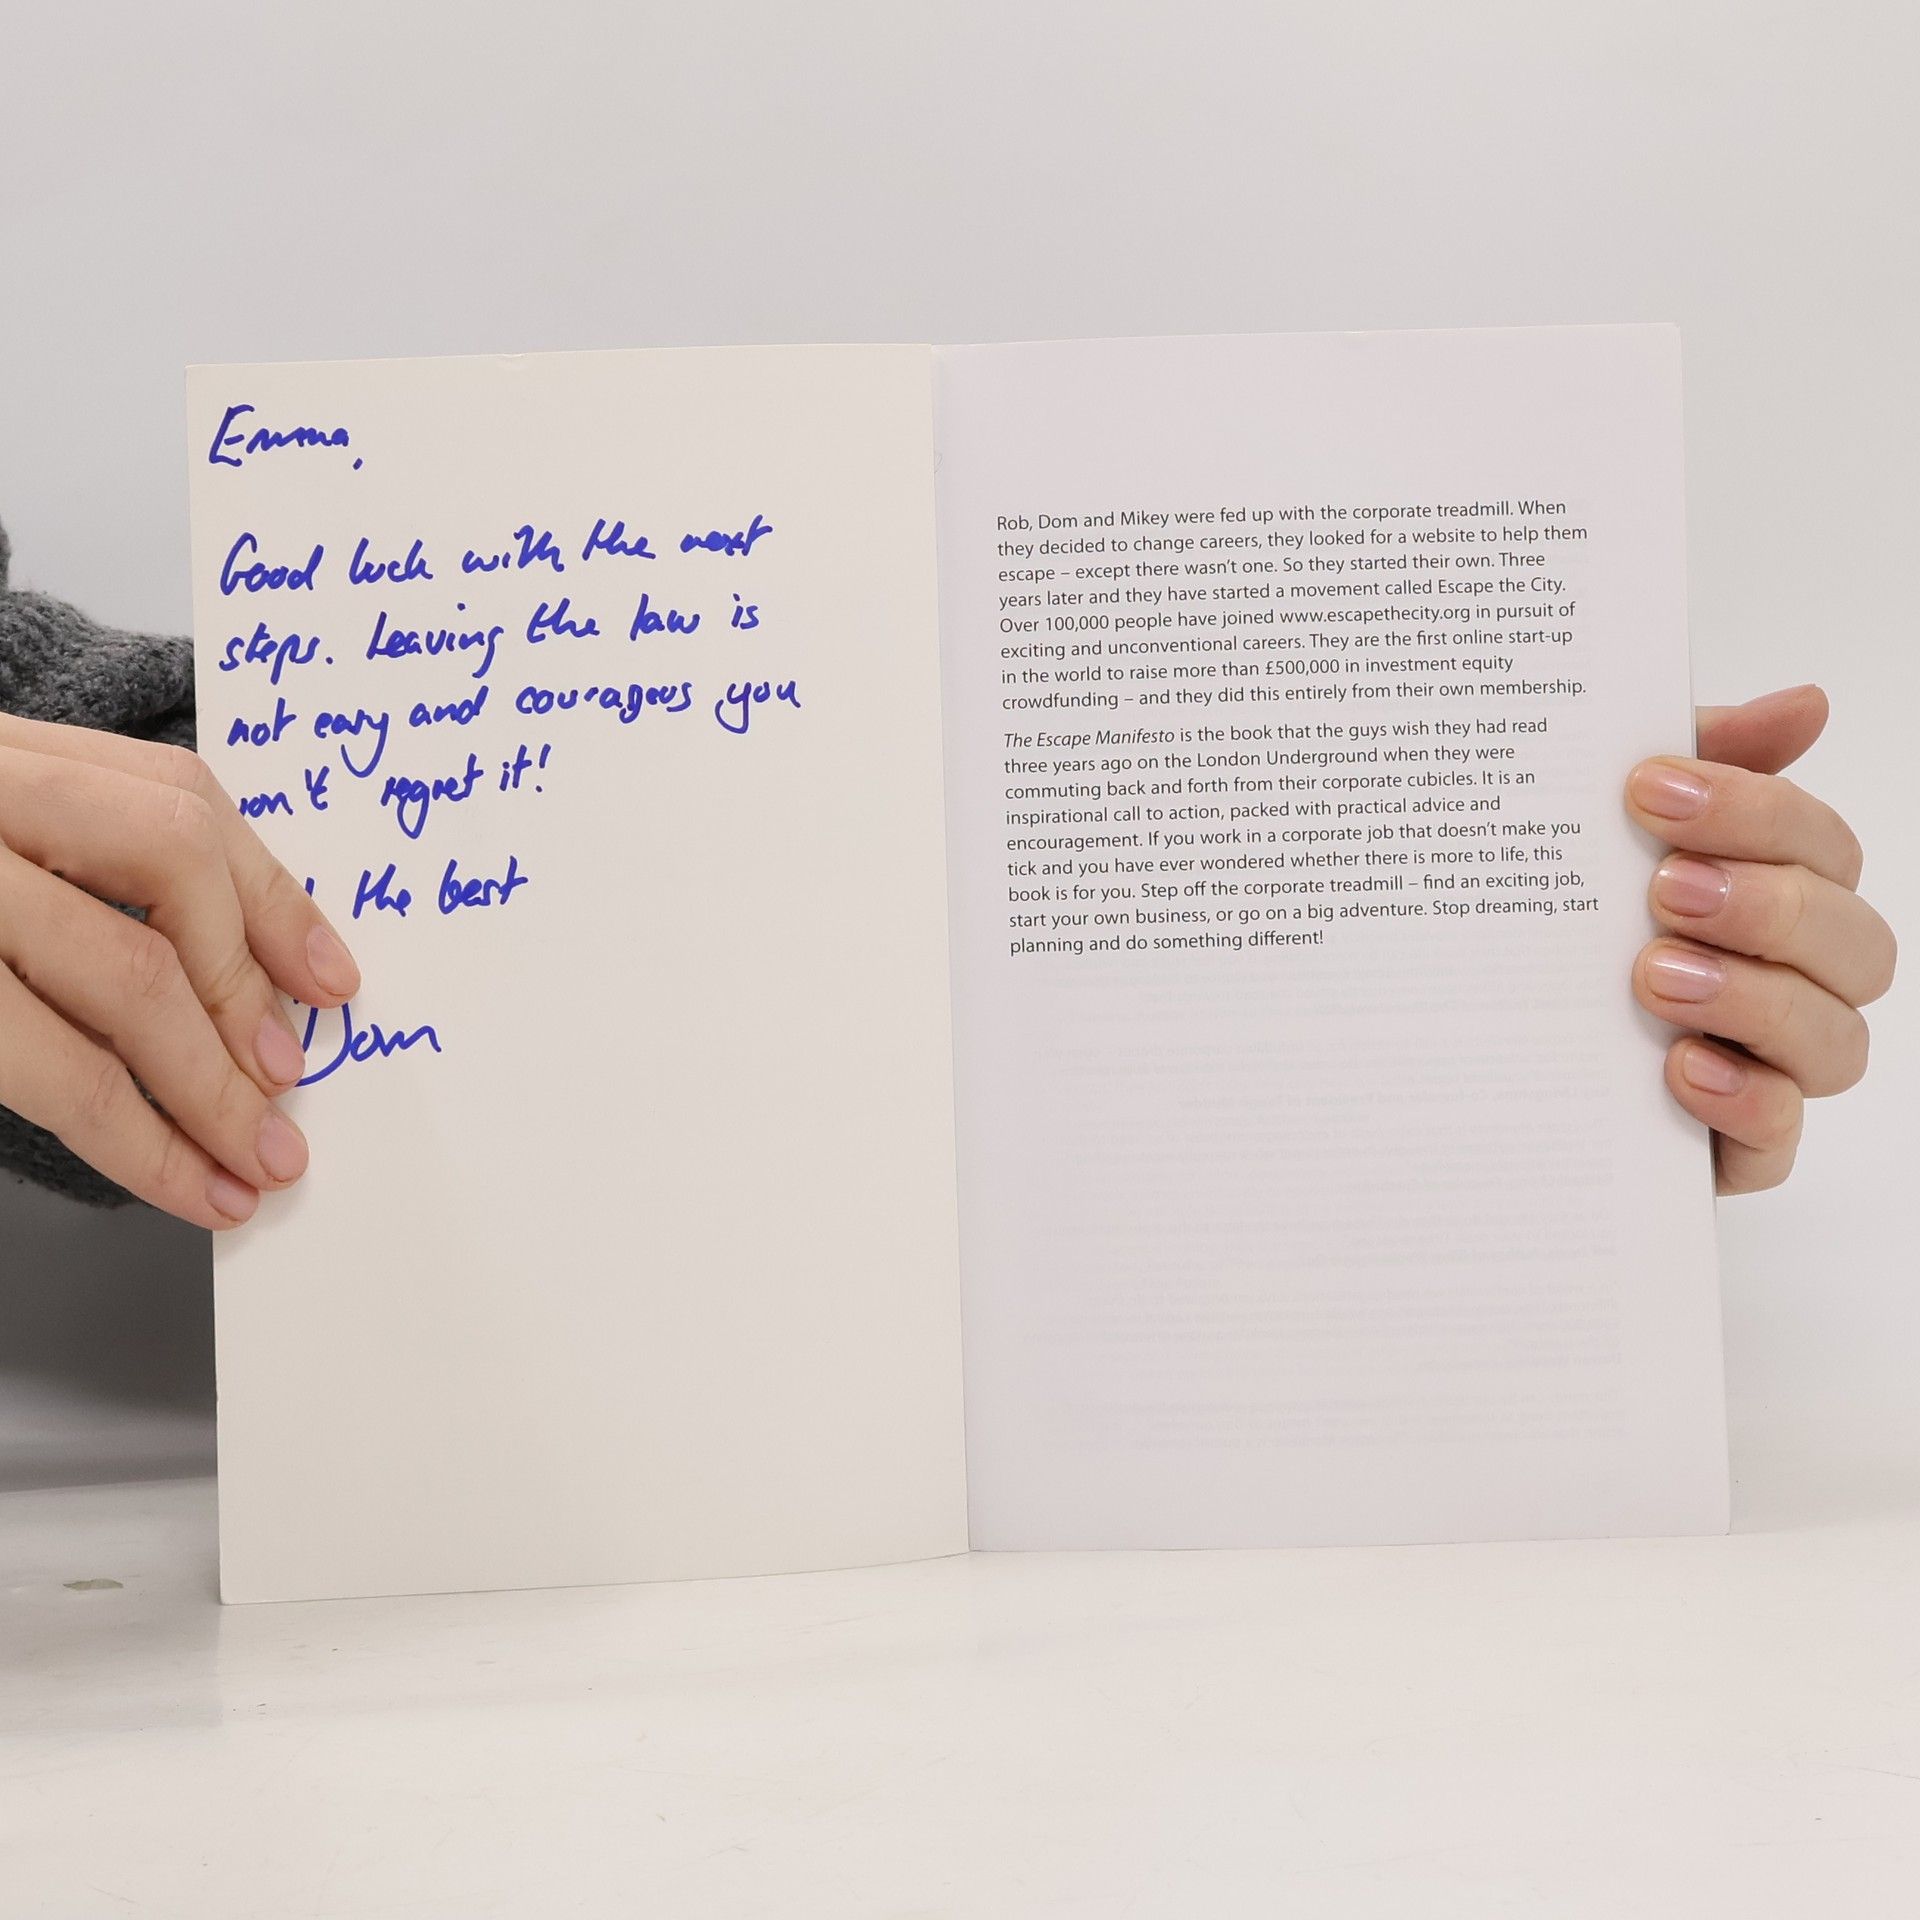 Emma,
Good luck with the next
steps. Leaving the law is
not easy and courageous you
won't regret it!
the best
Dom
Rob, Dom and Mikey were fed up with the corporate treadmill. When
they decided to change careers, they looked for a website to help them
escape – except there wasn't one. So they started their own. Three
years later and they have started a movement called Escape the City.
Over 100,000 people have joined www.escapethecity.org in pursuit of
exciting and unconventional careers. They are the first online start-up
in the world to raise more than £500,000 in investment equity
crowdfunding – and they did this entirely from their own membership.
The Escape Manifesto is the book that the guys wish they had read
three years ago on the London Underground when they were
commuting back and forth from their corporate cubicles. It is an
inspirational call to action, packed with practical advice and
encouragement. If you work in a corporate job that doesn't make you
tick and you have ever wondered whether there is more to life, this
book is for you. Step off the corporate treadmill – find an exciting job,
start your own business, or go on a big adventure. Stop dreaming, start
planning and do something different!